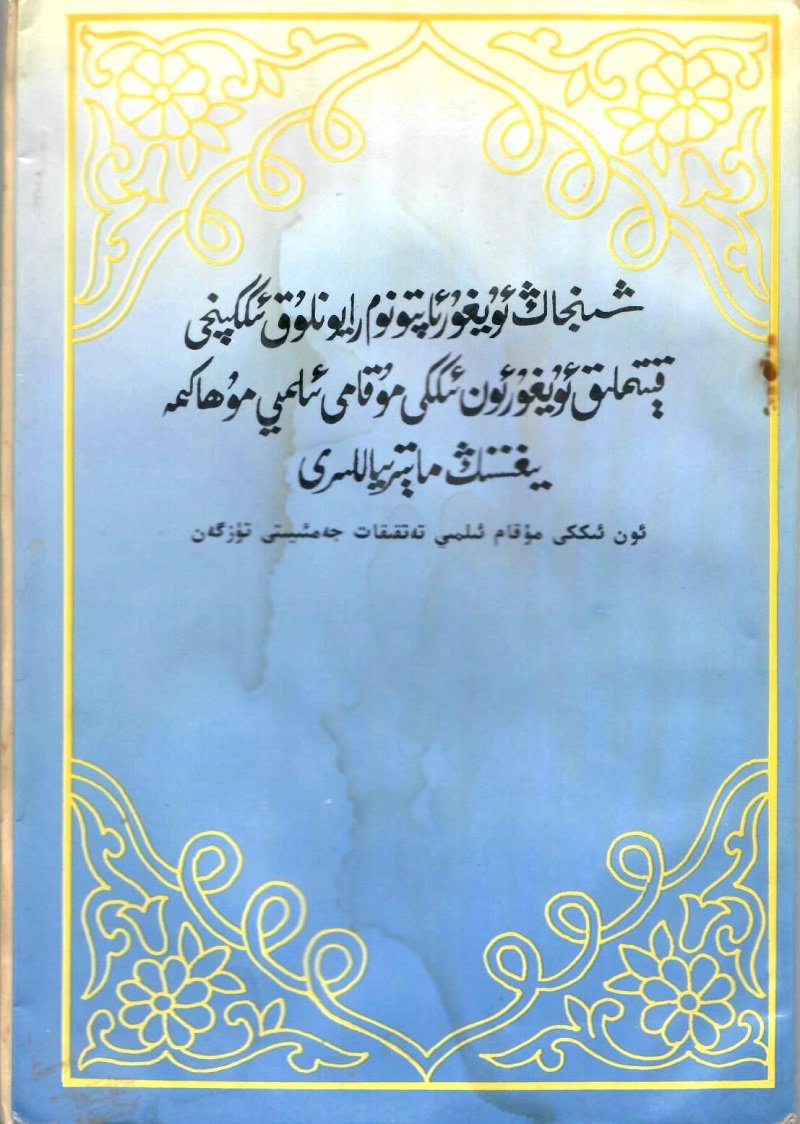 شىنجاڭ ئۇيغۇر ئاپتونوم رايونلۇق ئىككىنچى
قېتىملىق ئۇيغۇر ئون ئىككى مۇقامى ئىلمىي مۇھاكىمە
يىغىنىنىڭ ماتېرىياللىرى
ئون ئىككى مۇقام ئىلمىي تەتقىقات جەمئىيىتى تۈزگەن